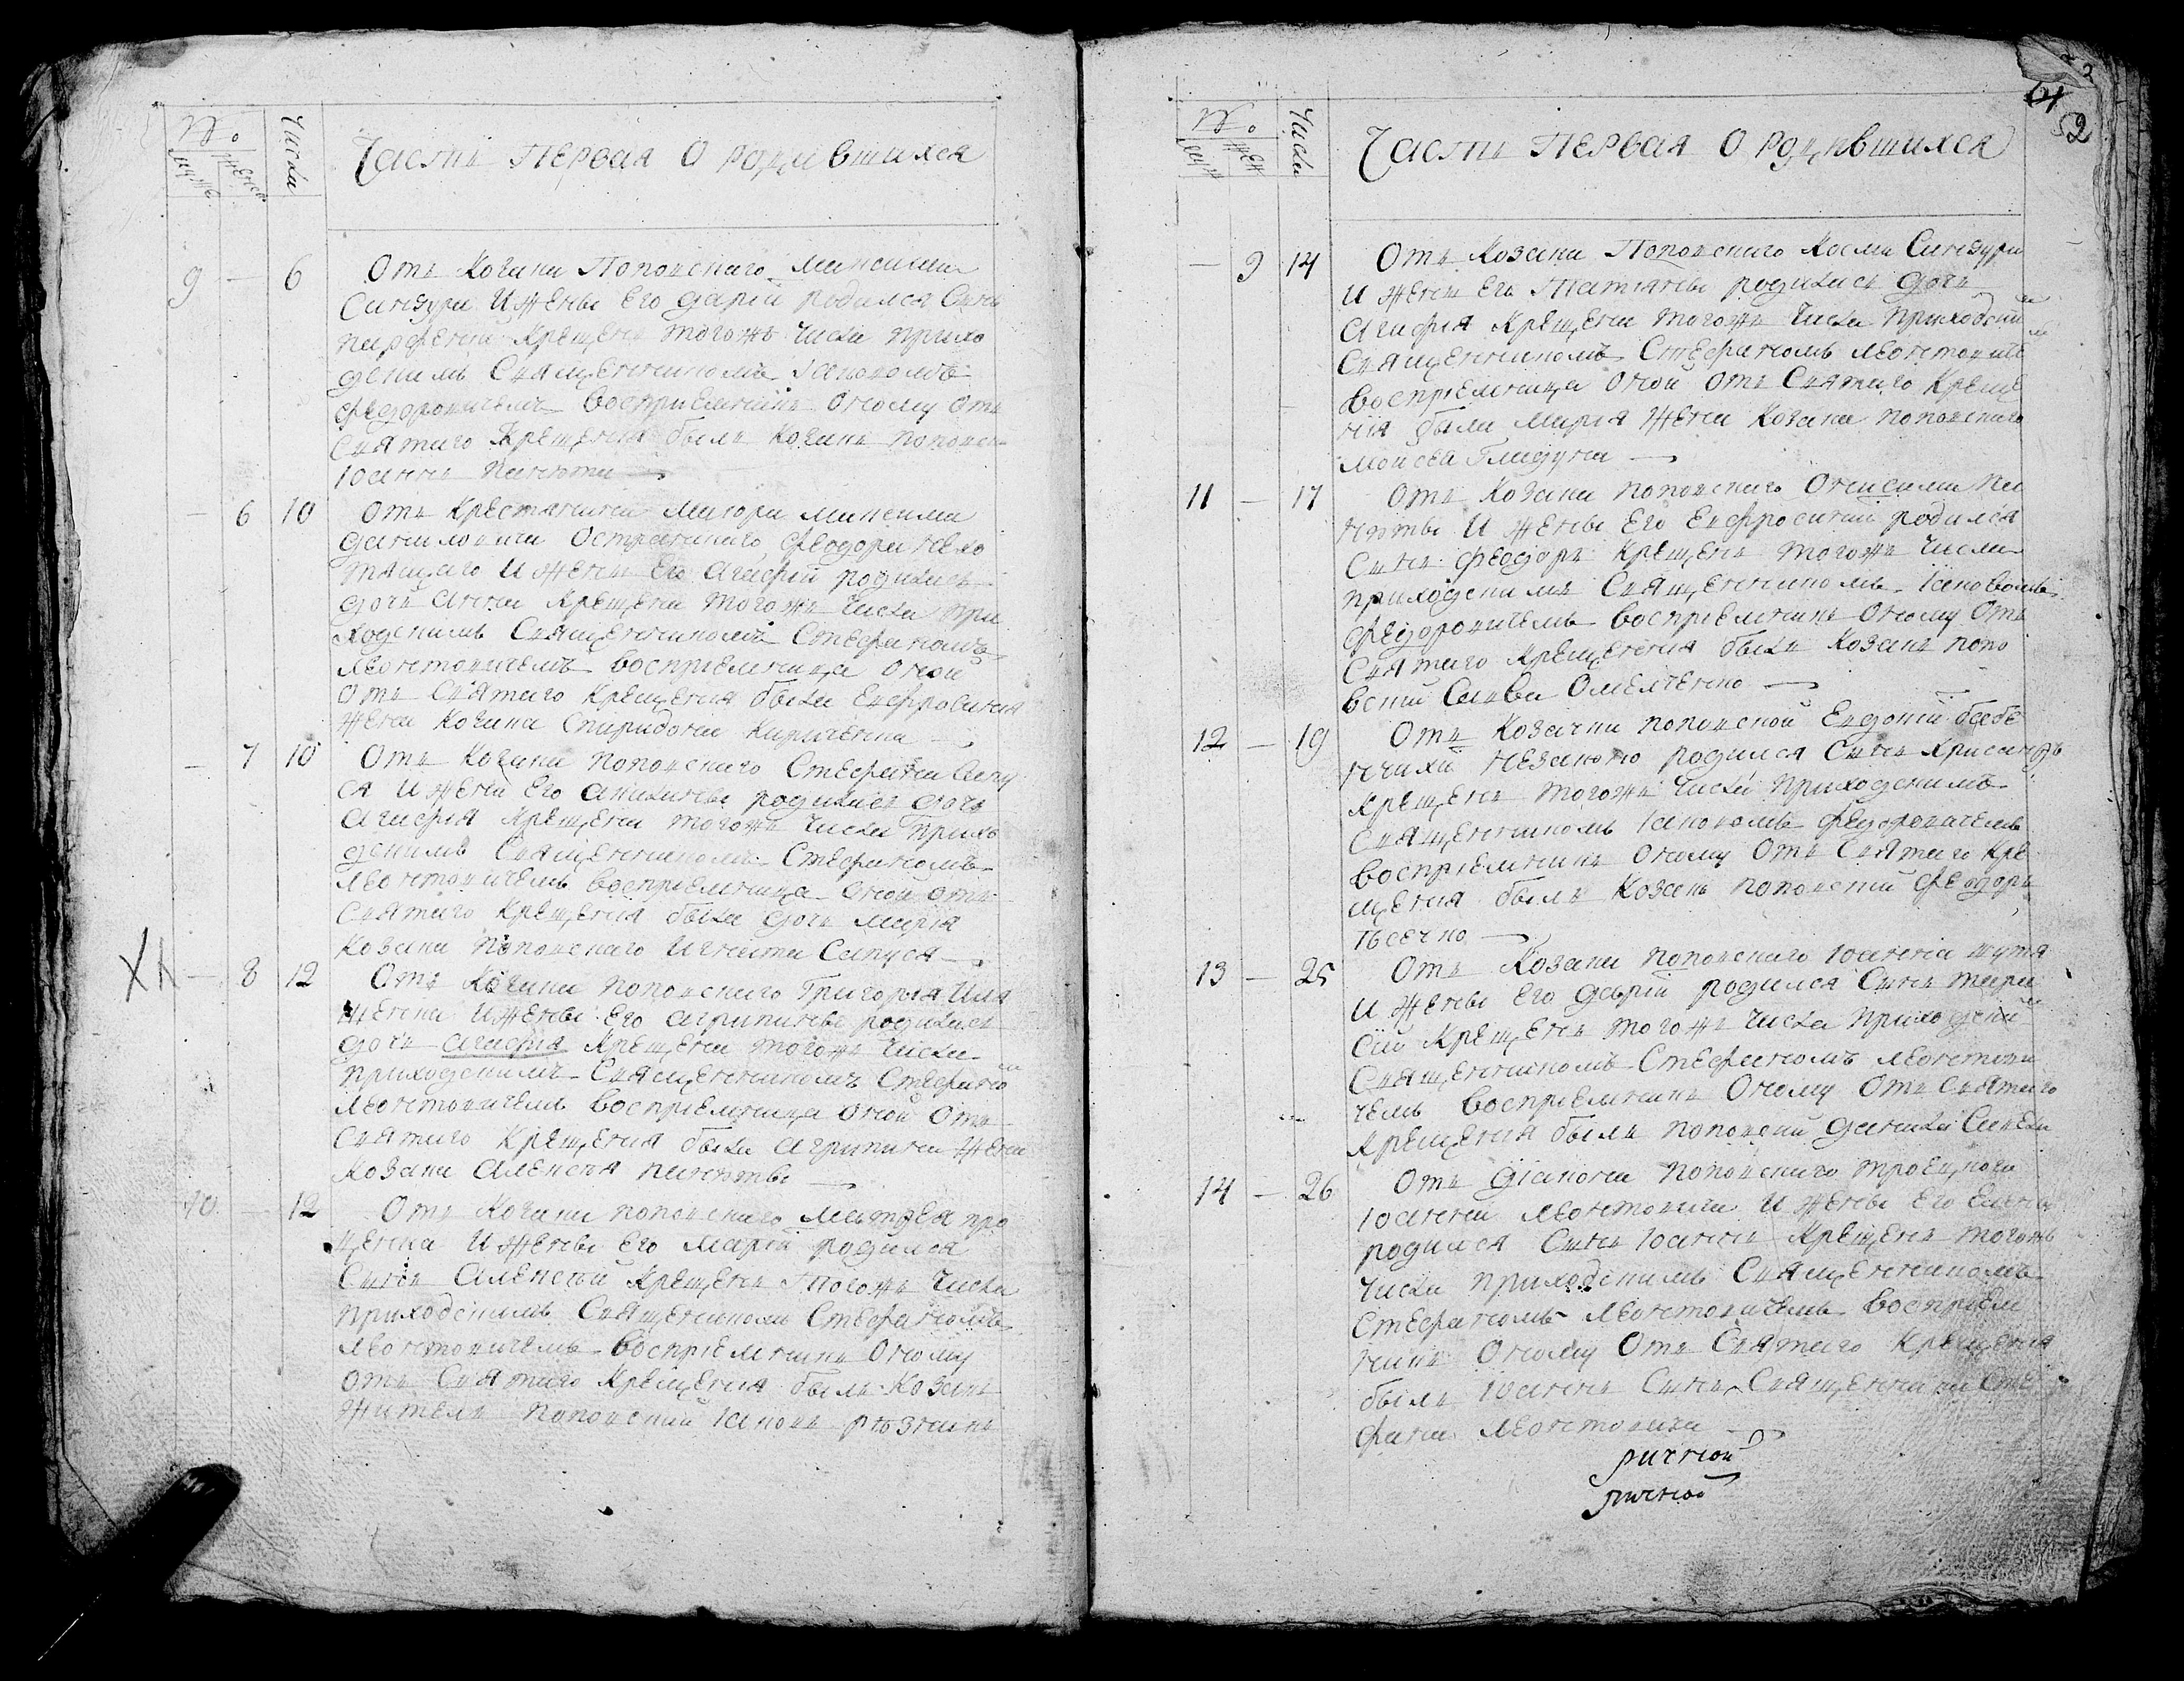 №
муж
женс
Числа
Часть Первая О родившихся
9 – 6 Отъ Козака Поповского Максима
и жены Его Дарiи родился Сынъ
Парфенiй Крещенъ тогожъ числа прихо
дскимъ Священникомъ Iаковомъ
Федоровичемъ восприемникъ Оному отъ
Святаго Крещенiя былъ Козакъ поповск
Iоаннъ
– 6 10 Отъ Крестянина Маiора Максима
Даниловича Остраднаго Феодора
и жены Его Агафiи родилась
дочь Анна Крещена тогожъ числа при
ходскимъ Священникомъ Стефаномъ
Леонтовичемъ восприемница оной
отъ Святаго Крещенiя была Евфросинiя
жена Козака Спиридона Кириченка
– 7 10 Отъ Козака поповскаго Стефана Сапу
ся и жены Его родилась дочь
Агафiя Крещена тогожъ числа прихо
дскимъ Священникомъ Стефаномъ
Леонтовичемъ восприемница оной отъ
Святаго Крещенiя была дочь Марiя
Козака поповскаго Игната Сапуся
ХА – 8 12 Отъ Козака поповскаго Григорiя Иля
шенка и жены Его Агрипины родилась
дочь Агафiя Крещена тогожъ числа
приходскимъ Священникомъ Стефано
Леонтовичемъ восприемница оной отъ
Святаго Крещенiя была Агрипина жена
Козака Алексѣя
10 – 12 Отъ Козака поповскаго Матфея Про
ценка и жены Его Марiи родился
Сынъ Алексѣй Крещенъ тогожъ числа
приходскимъ Священникомъ Стефаномъ
Леонтовичемъ восприемникъ Оному
отъ Святаго Крещенiя былъ Козакъ
житель поповскiй Iаковъ Рѣзникъ
2
61
52
№
муж
жен
Числа
Часть Первая О родившихся
– 9 14 Отъ Козака Поповского Косми
и жены Его Татiаны родилась дочь
Агафiя Крещена тогожъ числа приходским
Священникомъ Стефаномъ Леонтовиче
восприемница оной отъ Святаго Креще
нiя была Марiя жена Козака поповскаго
Моисея Гладуна
11 – 17 Отъ Козака поповскаго Онисима
и жены Его Евфросинiи родился
Сынъ Феодоръ Крещенъ тогожъ числа
приходскимъ Священникомъ Iаковомъ
Федоровичемъ восприемникъ Оному отъ
Святаго Крещенiя былъ Козакъ попо
вскiй Савва Омелченко
12 – 19 Отъ Козачки поповской Евдокiи
незаконно родился Сынъ Хрисанфъ
Крещенъ тогожъ числа приходскимъ
Священникомъ Iаковомъ Федоровичемъ
восприемникъ оному отъ Святаго Кре
щенiя былъ Козакъ поповскiй Феодоръ
13 – 25 Отъ Козака поповскаго Iоанна
и жены Его Дарiи родился Сынъ Тара
сiй Крещенъ тогожъ числа приходски
Священникомъ Стефаномъ Леонтови
чемъ восприемникъ Оному отъ Святаго
Крещенiя былъ поповскiй Данила
14 – 26 Отъ Дiакона поповскаго троецкого
Iоанна Леонтовича и жены Его Елены
родился Сынъ Iоаннъ Крещенъ тогожъ
числа приходскимъ Священникомъ
Стефаномъ Леонтовичемъ восприем
никъ Оному отъ Святаго Крещенiя
былъ Iоаннъ Сынъ Священника Сте
фана Леонтовича